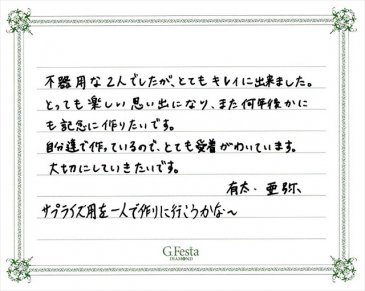 不器用な2人でしたが、とてもキレイに出来ました。
とっても楽しい思い出になり、また何年後かに
も記念に作りたいです。
自分達で作っているので、とても愛着がわいています。
大切にしていきたいです。
有太・亜弥
サプライズ用を一人で作りに行こうかな～
G.Festa
DIAMOND